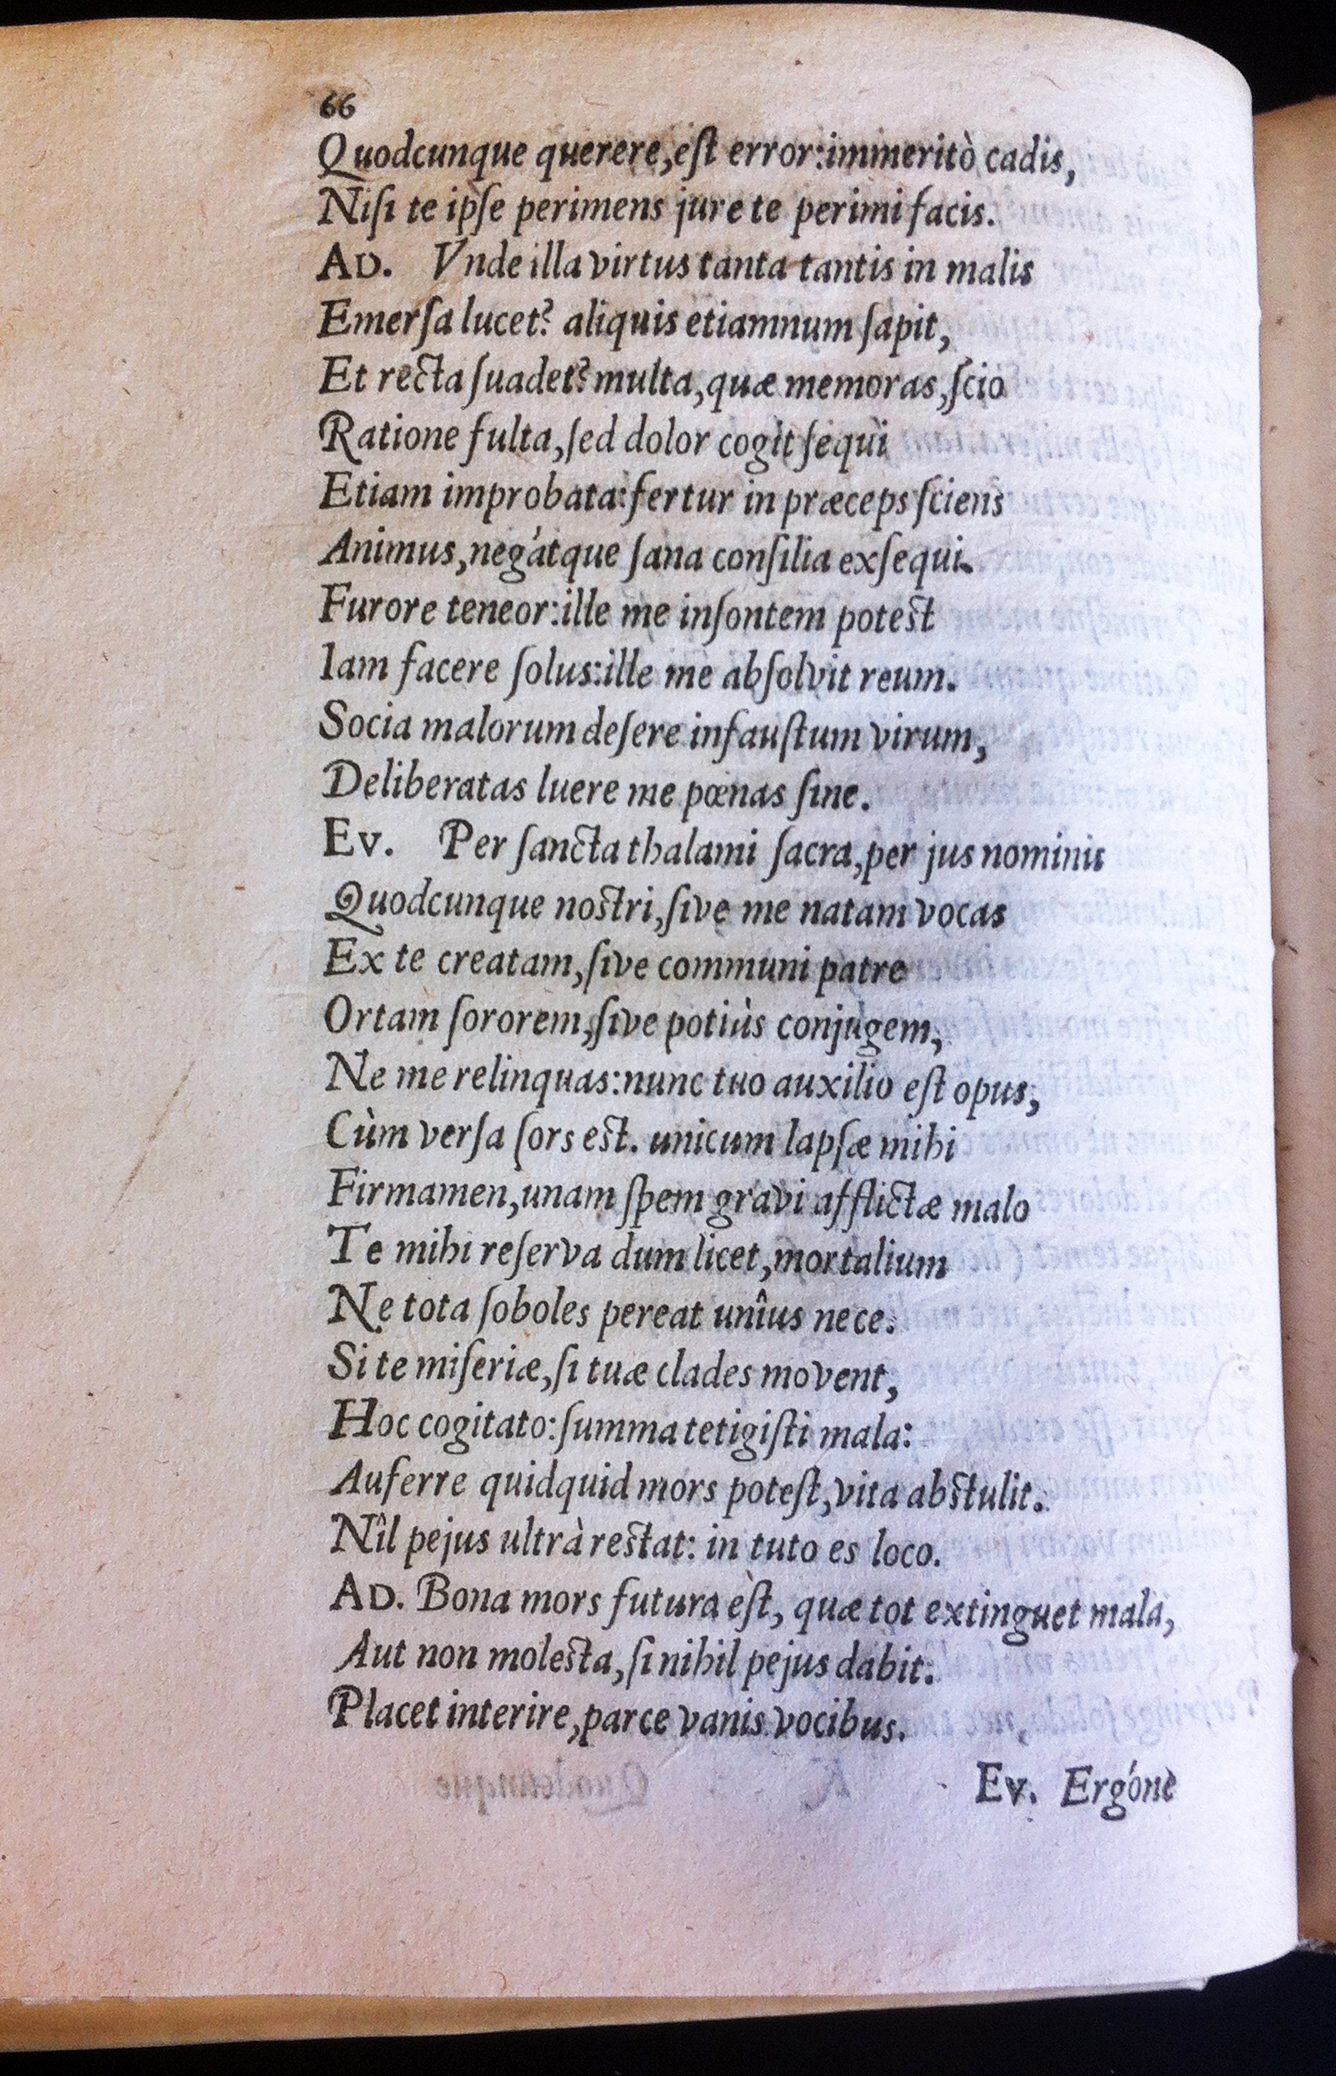 66
Quodcunque querere,eſt error:immeritò cadis,
Niſi te ipſe perimens jure te perimi facis.
AD. Vnde illa virtus tanta tantis in malis
Emerſa lucet? aliquis etiamnum ſapit,
Et recta ſuadet? multa,quæ memoras,ſcio
Ratione fulta,ſed dolor cogit ſequi
Etiam improbata:fertur in præceps ſciens
Animus,negátque ſana conſilia exſequi.
Furore teneor:ille me inſontem poteſt
Iam facere ſolus:ille me abſolvit reum.
Socia malorum deſere infauſtum virum,
Deliberatas luere me pœnas ſine.
EV. Per ſancta thalami ſacra,per jus nominis
Quodcunque noſtri,ſive me natam vocas
Ex te creatam,ſive communi patre
Ortam ſororem,ſive potiùs conjugem,
Ne me relinquas:nunc tuo auxilio eſt opus,
Cùm verſa ſors eſt. unicum lapſæ mihi
Firmamen,unam ſpem gravi afflictæ malo
Te mihi reſerva dum licet,mortalium
Ne tota ſoboles pereat unîus nece.
Si te miſeriæ,ſi tuæ clades movent,
Hoc cogitato:ſumma tetigiſti mala:
Auferre quidquid mors poteſt,vita abſtulit.
Nîl pejus ultrà reſtat: in tuto es loco.
AD. Bona mors futura eſt, quæ tot extinguet mala,
Aut non moleſta,ſi nihil pejus dabit.
Placet interire,parce vanis vocibus.
EV. Ergóne